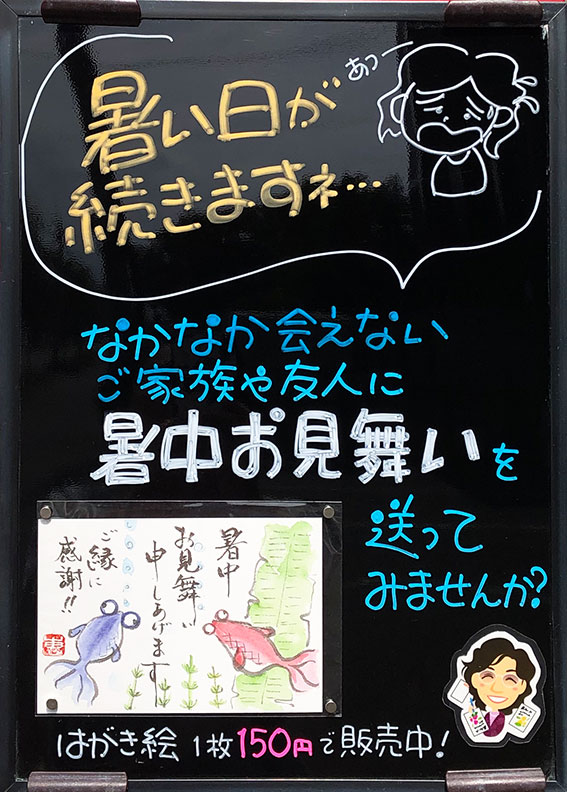 あつー
暑い日が
続きますネ…
なかなか会えない
ご家族や友人に
暑中お見舞いを
送って
みませんか?
暑中
お見舞い
申しあげます
ご縁に
感謝!!
はがき絵 1枚150円で販売中!